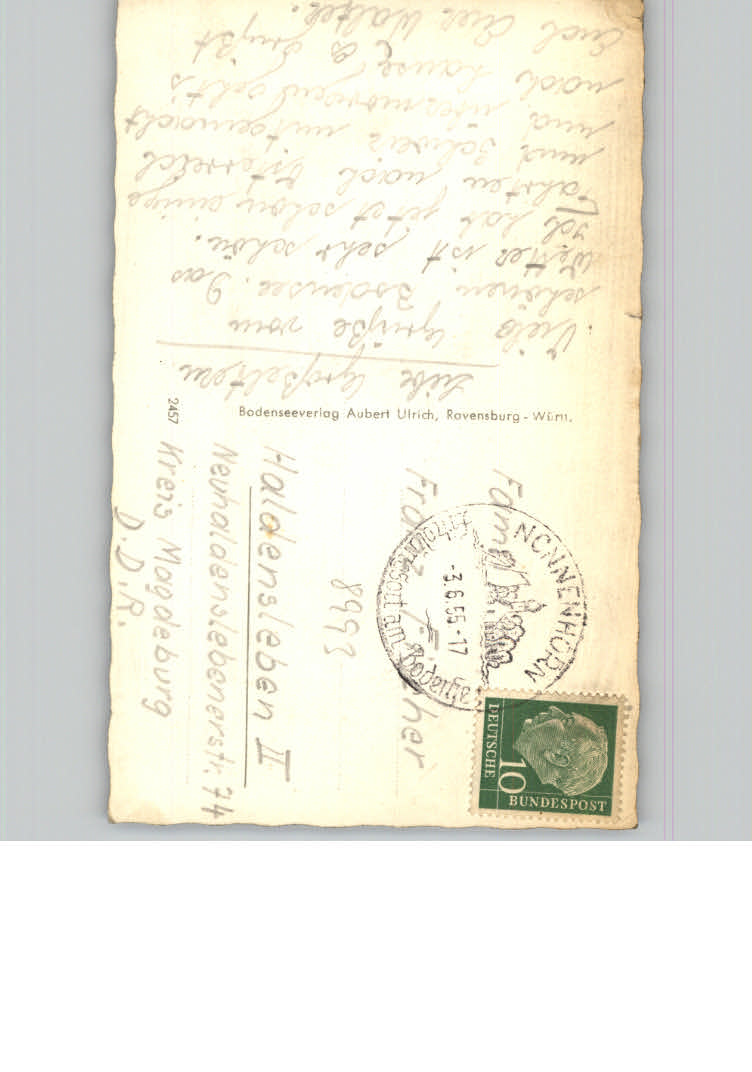 Liebe Großeltern
Viele Grüße vom
schönen Bodensee. Das
Wetter ist sehr schön.
Ich hab jetzt schon einige
Fahrten nach Österreich
und Schweiz mitgemacht
und übermorgen geht's
nach Hause. Es grüßt
Euch Euer Walter.
Bodenseeverlag Aubert Ulrich, Ravensburg - Württ.
2457
Fam.
Franz
8993
Haldensleben II
Neuhaldenslebenerstr. 74
Kreis Magdeburg
D.D.R.
NONNENHORN
-3.6.56-17
am Bodensee
DEUTSCHE
10
BUNDESPOST